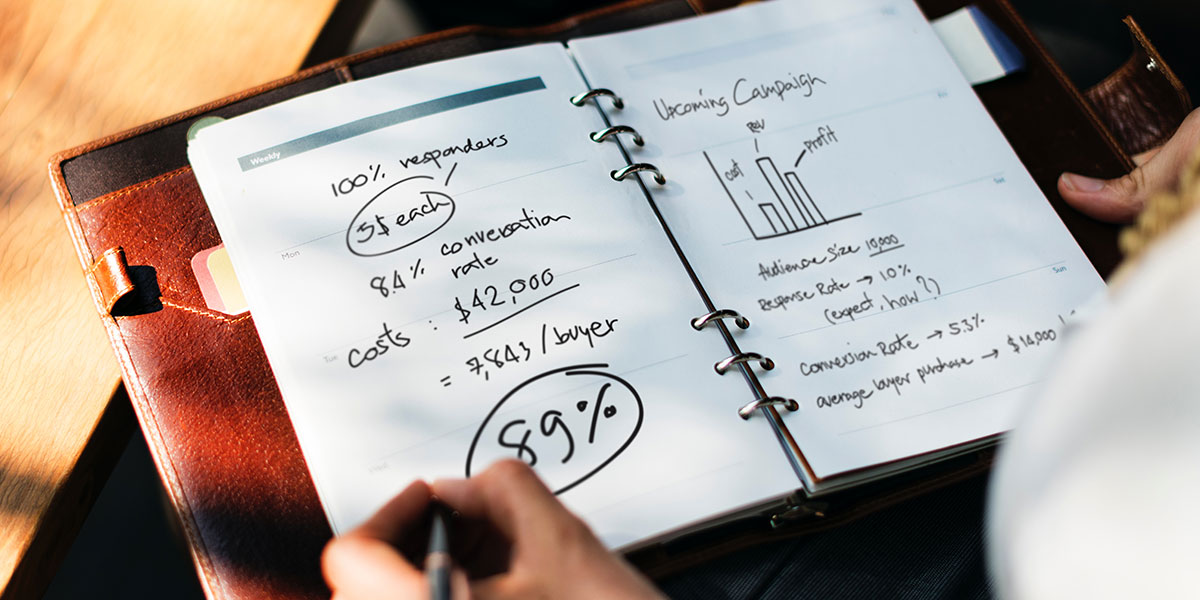 Weekly
100% responders
5$ each
8.4% conversation
rate
costs : $42,000
= 7,843/buyer
89%
Mon
Tue
Wed
Upcoming Campaign
cost
REV
profit
Audience Size 10,000
Response Rate → 10%
(expect, how?)
Conversion Rate → 5.3%
average buyer purchase → $14,000
Sun